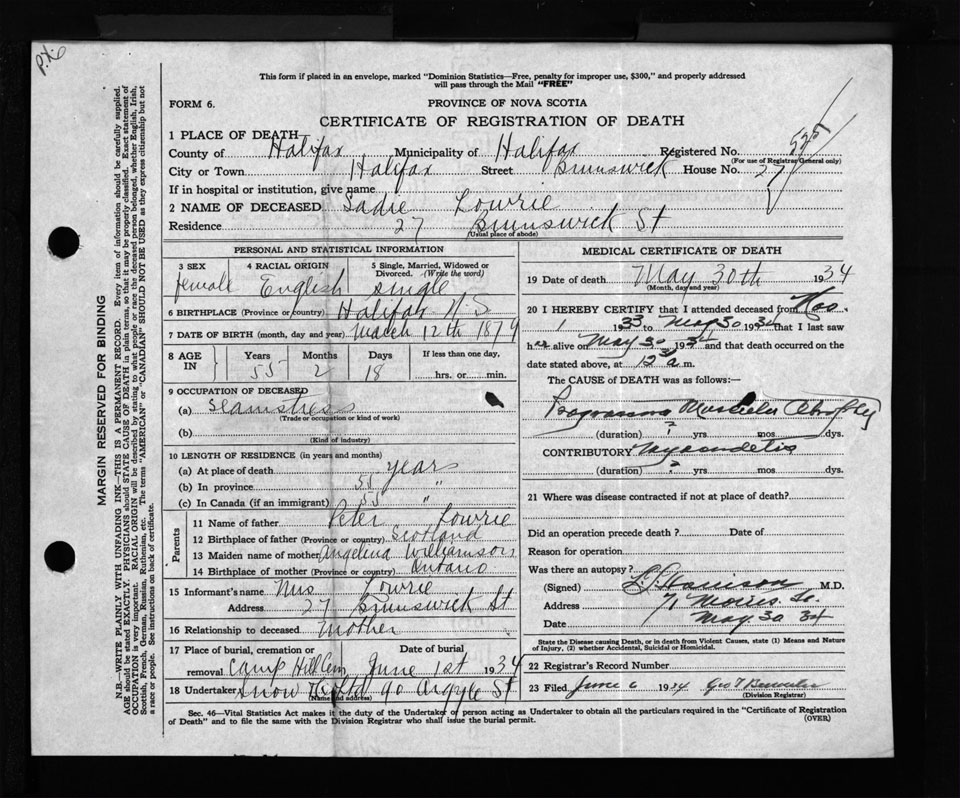 P.X.6
This form if placed in an envelope, marked "Dominion Statistics—Free, penalty for improper use, $300," and properly addressed
will pass through the Mail "FREE"
FORM 6.
PROVINCE OF NOVA SCOTIA
CERTIFICATE OF REGISTRATION OF DEATH
1 PLACE OF DEATH
County of Halifax Municipality of Halifax Registered No. 525
(For use of Registrar General only)
City or Town Halifax Street Brunswick House No. 27
If in hospital or institution, give name
2 NAME OF DECEASED Sadie Lowrie
Residence 27 Brunswick St
(Usual place of abode)
PERSONAL AND STATISTICAL INFORMATION
3 SEX female
4 RACIAL ORIGIN English
5 Single, Married, Widowed or Divorced. (Write the word) single
6 BIRTHPLACE (Province or country) Halifax N S
7 DATE OF BIRTH (month, day and year) March 12th 1879
8 AGE IN Years 55 Months 2 Days 18 If less than one day, hrs. or min.
9 OCCUPATION OF DECEASED
(a) Seamstress
(Trade or occupation or kind of work)
(b)
(Kind of industry)
10 LENGTH OF RESIDENCE (in years and months)
(a) At place of death 55 years
(b) In province 55 "
(c) In Canada (if an immigrant) 55 "
Parents
11 Name of father Peter Lowrie
12 Birthplace of father (Province or country) Scotland
13 Maiden name of mother Angelina Williamson
14 Birthplace of mother (Province or country) Ontario
15 Informant's name Mrs Lowrie
Address 27 Brunswick St
16 Relationship to deceased mother
17 Place of burial, cremation or removal Camp Hill Cem
Date of burial June 1st 1934
18 Undertaker Snow 90 Argyle St
(Name and address)
MEDICAL CERTIFICATE OF DEATH
19 Date of death May 30th 1934
(Month, day and year)
20 I HEREBY CERTIFY that I attended deceased from Nov
1 1933 to May 30 1934 that I last saw
her alive on May 30 1934 and that death occurred on the
date stated above, at 12 30 a m.
The CAUSE of DEATH was as follows:
Progressive Muscular Atrophy
(duration) ? yrs mos dys.
CONTRIBUTORY Myocarditis
(duration) ? yrs mos dys.
21 Where was disease contracted if not at place of death?
Did an operation precede death? Date of
Reason for operation
Was there an autopsy?
(Signed) M.D.
Address 71 Morris St.
Date May 30 34
State the Disease causing Death, or in death from Violent Causes, state (1) Means and Nature
of Injury, (2) whether Accidental, Suicidal or Homicidal.
22 Registrar's Record Number
23 Filed June 6 1934 Geo T
(Division Registrar)
Sec. 46—Vital Statistics Act makes it the duty of the Undertaker or person acting as Undertaker to obtain all the particulars required in the "Certificate of Registration
of Death" and to file the same with the Division Registrar who shall issue the burial permit. (OVER)
MARGIN RESERVED FOR BINDING
N.B.—WRITE PLAINLY WITH UNFADING INK—THIS IS A PERMANENT RECORD. Every item of information should be carefully supplied.
AGE should be stated EXACTLY. PHYSICIANS should STATE CAUSE OF DEATH in plain terms, so that it may be properly classified. Exact statement of
OCCUPATION is very important. RACIAL ORIGIN will be described by stating to what people or race the deceased person belonged, whether English, Irish,
Scottish, French, German, Russian, Ruthenian, etc. The terms "AMERICAN" or "CANADIAN" SHOULD NOT BE USED as they express citizenship but not
a race or people. See instructions on back of certificate.